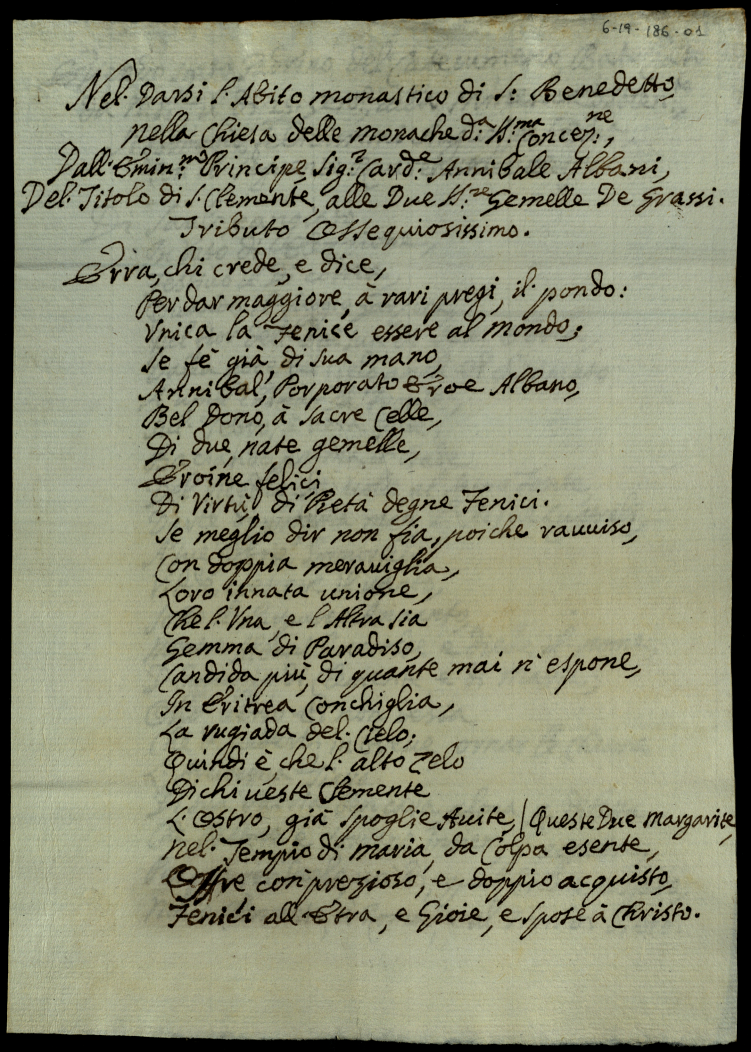 6-19-186-01
Nel. Darsi l. Abito monastico di S: Benedetto,
nella Chiesa delle monache d:a SS:ma Concez:ne,
Dall. Emin:mo Principe, Sig:r Card:e Annibale Albani,
Del. Titolo di S. Clemente, alle Due SS:re Gemelle De Grassi.
Tributo Ossequiosissimo.
Erra, chi crede, e dice,
Per dar maggiore, à rari pregi, il. pondo:
Unica la Fenice essere al mondo;
Se fè già, di sua mano,
Annibal, Porporato Eroe Albano,
Bel Dono, à Sacre Celle,
Di due, nate gemelle,
Eroine felici,
Di Virtù, di Pietà degne Fenici.
Se meglio dir non fia, poiche rauuiso,
Con doppia merauiglia,
Loro innata unione,
Che l. Una, e l Altra sia
Gemma di Paradiso,
Candida più, di quante mai n' espone,
In Eritrea Conchiglia,
La rugiada del. Cielo;
Quindi è, che l. alto Zelo
Di chi ueste Clemente
L. Ostro, già Spoglie Auite, / Queste Due Margarite,
Nel. Tempio di Maria, da Colpa esente,
Offre con prezioso, e doppio acquisto,
Fenici all Etra, e Gioie, e Spose à Christo.